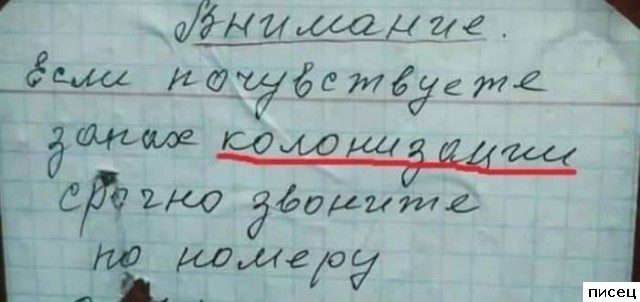 Внимание.
Если почувствуете
запах колонизации
срочно звоните
по номеру
писец